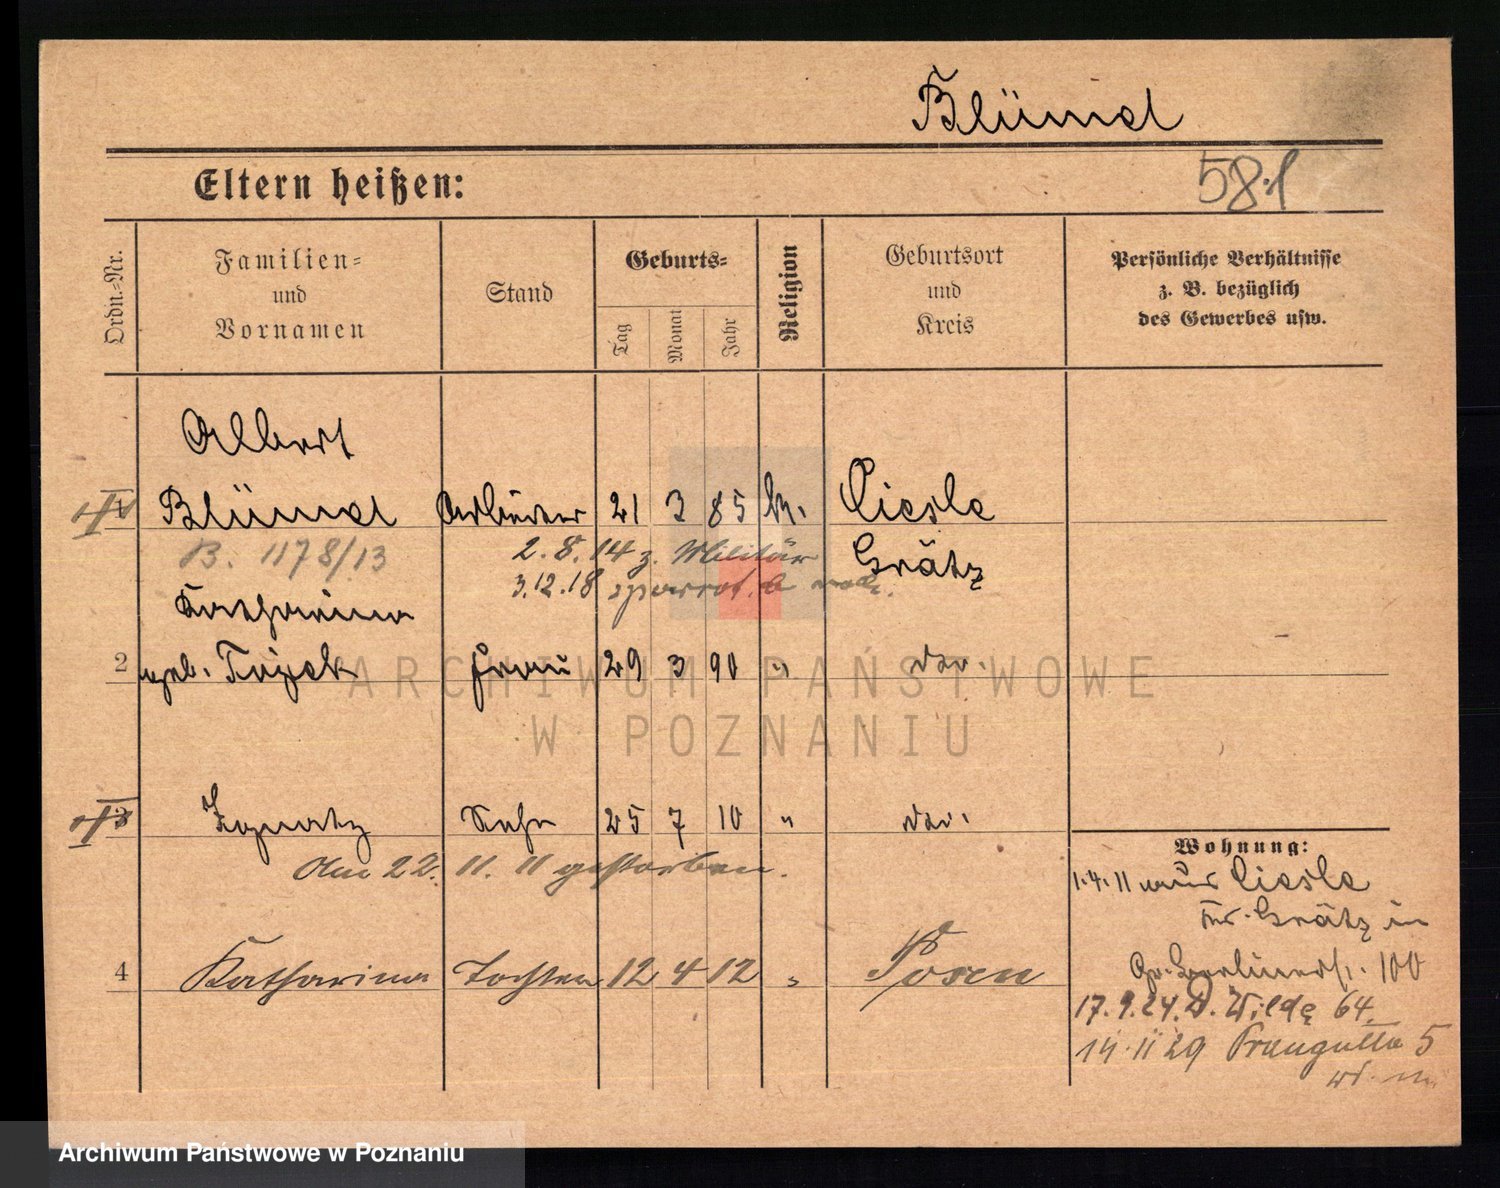 Blümel
Eltern heißen:
58.1
Ordn.-Nr.
Familien-
und
Vornamen
Stand
Geburts-
Tag
Monat
Jahr
Religion
Geburtsort
und
Kreis
Persönliche Verhältnisse
z. B. bezüglich
des Gewerbes usw.
Albert
1 Blümel Arbeiter 21 3 85 k. Ciesle
B. 1178/13 2.8.14 z. Militär Grätz
3.12.18
Katharina
2 geb. Frau 29 3 90 " do.
ARCHIWUM PAŃSTWOWE
W POZNANIU
3 Ignatz Sohn 25 7 10 " do.
Am 22. 11. 11 gestorben.
4 Katharina Tochter 12 4 12 " Posen
Wohnung:
1.4.11 aus Ciesle
Kr. Grätz in
Gr. Berlinerstr. 100
17.9.24. W. Wilde 64.
14.11 29 5
Archiwum Państwowe w Poznaniu